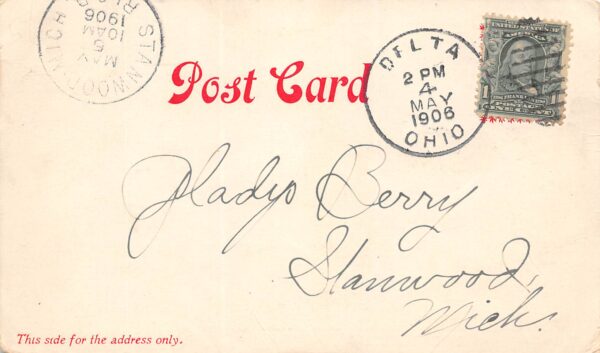 STANWOOD MICH
MAY
5
10AM
1906
Post Card
DELTA
2 PM
4
MAY
1906
OHIO
UNITED STATES OF AMERICA
1 FRANKLIN 1
POSTAGE
ONE CENT
Gladys Berry
Stanwood,
Mich.
This side for the address only.